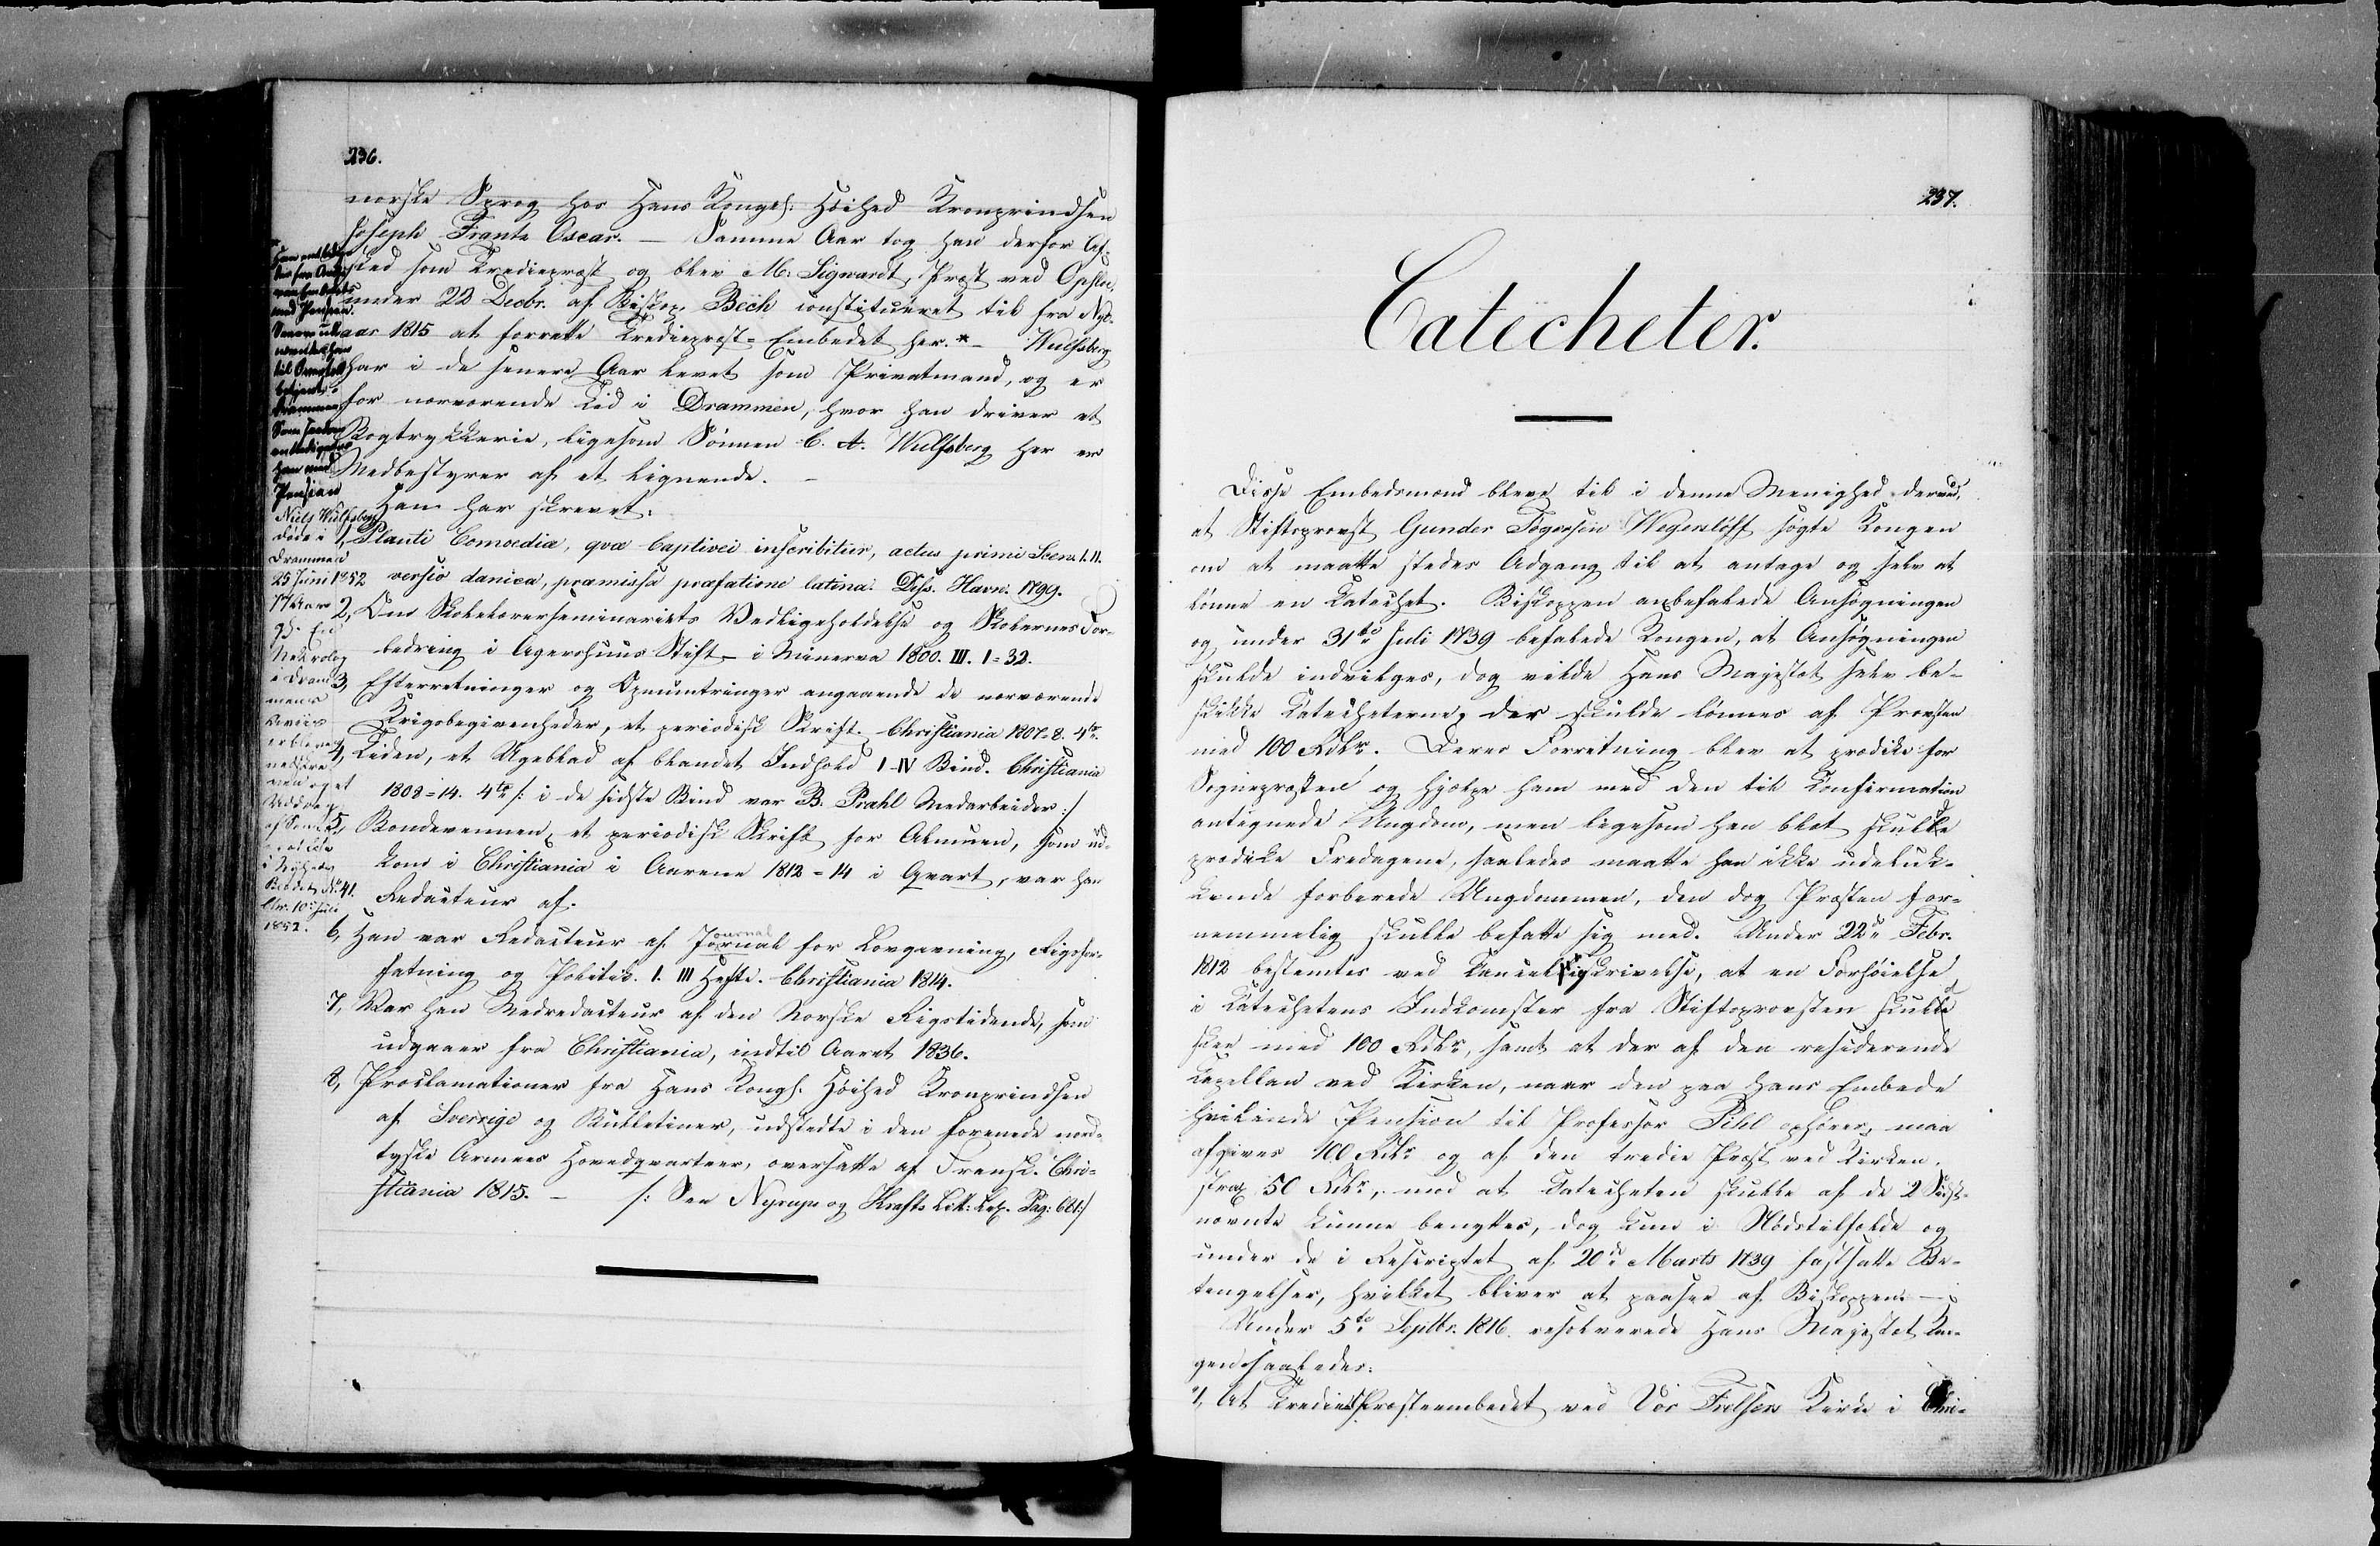 236.
norske Sprog hos Hans Kongel. Høihed Kronprindsen
Joseph Frantz Oscar. — Samme Aar tog han derfor Af-
sked som Tredieprest og blev M: Sigwardt, Prest ved Opsloe,
under 22 Decbr. af Biskop Bech constitueret til fra Nyt-
aar 1815 at forrette Tredieprest-Embedet her.* — Wulfsberg
har i de senere Aar levet som Privatmand, og er
for nærværende Tid i Drammen, hvor han driver et
Bogtrykkerie, ligesom Sønnen C. A. Wulfsberg her er
Medbestyrer af et lignende. —
Han har skrevet:
1, Plauti Comoedia, qvæ Captivei inscribitur, actus primi Scena I. II.
versio danica, præmissa præfatione latina. Diss. Havn. 1799.
2, Om Skolelærerseminariets Vedligeholdelse og Skolernes For-
bedring i Agershuus Stift — i Minerva 1800. III. 1-32.
3, Efterretninger og Opmuntringer angaaende de nærværende
Krigsbegivenheder, et periodisk Skrift. Christiania 1807-8. 4to.
4, Tiden, et Ugeblad af blandet Indhold I-IV Bind. Christiania
1808-14. 4to /: i de sidste Bind var B. Prahl Medarbeider :/
5, Bondevennen, et periodisk Skrift for Almuen, som ud-
kom i Christiania i Aarene 1812-14 i Qvart, var han
Redacteur af.
6, Han var Redacteur af Journal for Lovgivning, Rigsfor-
fatning og Politik. I. III Hefte. Christiania 1814.
7, Var han Medredacteur af den Norske Rigstidende, som
udgaaer fra Christiania, indtil Aaret 1836.
8, Proclamationer fra Hans Kongl. Høihed Kronprindsen
af Sverrige og Bulletiner, udstedte i den forenede nord-
tydske Armees Hovedqvarteer, oversatte af Fransk. Chri-
stiania 1815. — /: See Nyerup og Krafts Litt: Lex. Pag: 661 :/
med Pension.
Drammen
Han med
Pension
Niels Wulfsberg
døde i
Drammen
25 Juni 1852
77 Aar
gl. En
Nekrolog
i Dram-
mens
af Sønnen
i Nyheds
Bladet No. 41.
Chr. 10de Juli
1852.
237.
Catecheter.
Disse Embedsmænd bleve til i denne Menighed derved,
at Stiftsprovst Gunder Tøgersen Wegersløff søgte Kongen
om at maatte stedes Adgang til at antage og selv at
lønne en Catechet. Biskoppen anbefalede Ansøgningen
og under 31te Juli 1739 befalede Kongen, at Ansøgningen
skulde indvilges, dog vilde Hans Majestæt selv be-
skikke Catecheterne, der skulde lønnes af Provsten
med 100 Rdlr. Deres Forretning blev at prædike for
Sognepresten og hjælpe ham med den til Confirmation
antegnede Ungdom, men ligesom han blot skulde
prædike Fredagene, saaledes maatte han ikke udeluk-
kende forberede Ungdommen, den dog Presten for-
nemmelig skulde befatte sig med. Under 22de Febr.
1812 bestemtes ved Cancelliskrivelse, at en Forhøielse
i Catechetens Indkomster fra Stiftsprovsten skulde
skee med 100 Rdlr, samt at der af den residerende
Capellan ved Kirken, naar den paa hans Embede
hvilende Pension til Professor Pihl ophører, maa
afgives 100 Rdlr og af den tredie Prest ved Kirken
strax 50 Rdlr, mod at Catecheten skulde af de 2 Sidst-
nævnte kunne benyttes, dog kun i Nødstilfælde og
under de i Rescriptet af 20de Marts 1739 fastsatte Be-
tingelser, hvilket bliver at paasee af Biskoppen. —
Under 5te Septbr. 1816 resolverede Hans Majestæt Kon-
gen saaledes:
1, At Tredie Presteembedet ved Vor Frelsers Kirke i Chri-